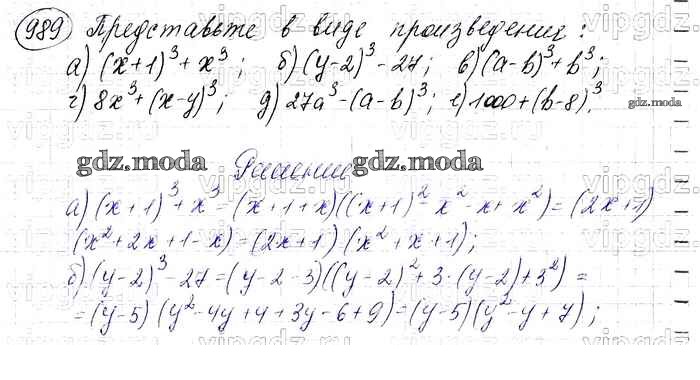 989 Представьте в виде произведения:
а) (x+1)³+x³; б) (y-2)³-27; в) (a-b)³+b³;
г) 8x³+(x-y)³; д) 27a³-(a-b)³; е) 1000+(b-8)³.
gdz.moda
gdz.moda Решение gdz.moda
а) (x+1)³+x³=(x+1+x)((x+1)²-x²-x+x²)=(2x+1)
(x²+2x+1-x)=(2x+1)(x²+x+1);
б) (y-2)³-27=(y-2-3)((y-2)²+3·(y-2)+3²)=
=(y-5)(y²-4y+4+3y-6+9)=(y-5)(y²-y+7);